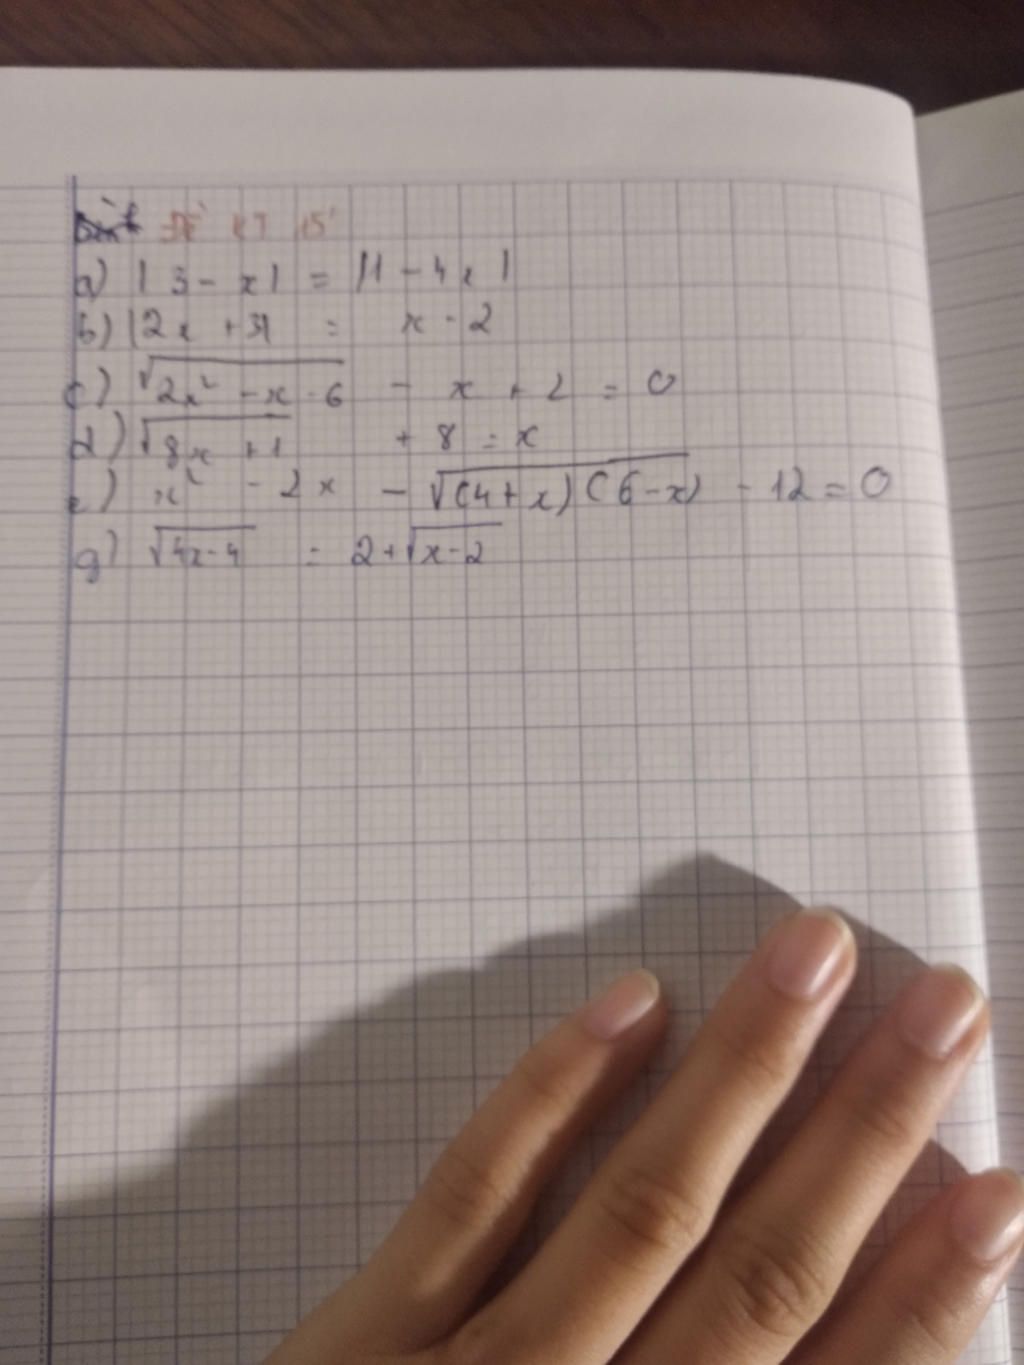 Đề KT 15'
a) |3 - x| = |1 - 4x|
b) |2x + 3| = x - 2
c) √(2x² - x - 6) - x + 2 = 0
d) √(8x + 1) + 8 = x
e) x² - 2x - √((4+x)(6-x)) - 12 = 0
g) √(4x-4) = 2 + √(x-2)